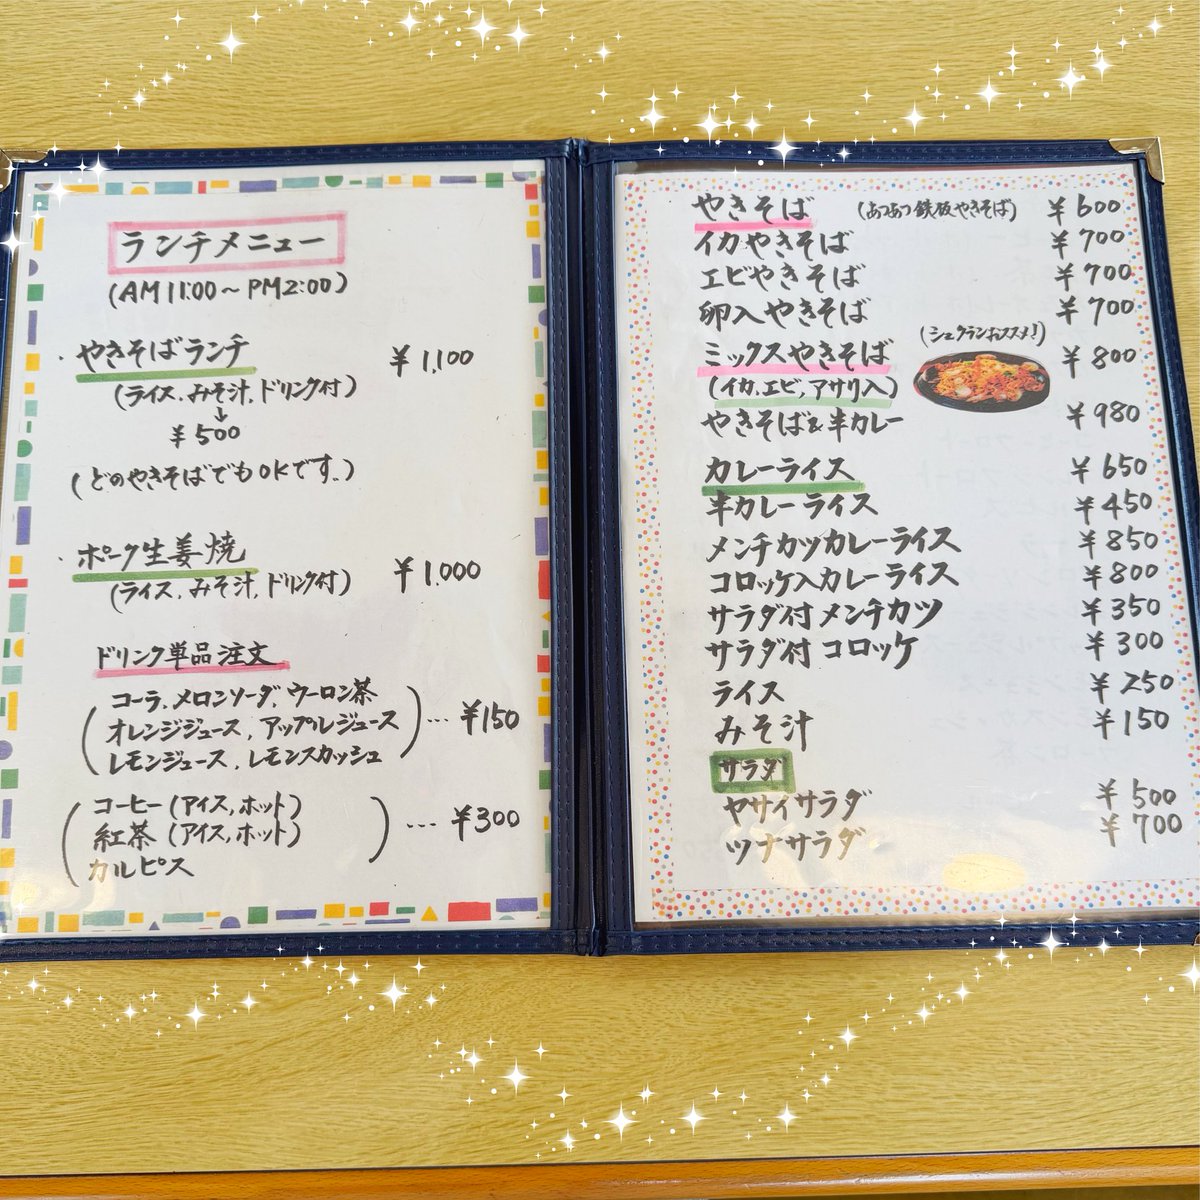 ランチメニュー
(AM11:00～PM2:00)
・やきそばランチ ¥1,100
(ライス、みそ汁、ドリンク付)
↓
¥500
(どのやきそばでもOKです。)
・ポーク生姜焼 ¥1,000
(ライス、みそ汁、ドリンク付)
ドリンク単品注文
コーラ、メロンソーダ、ウーロン茶
オレンジジュース、アップルジュース … ¥150
レモンジュース、レモンスカッシュ
コーヒー(アイス、ホット)
紅茶(アイス、ホット) … ¥300
カルピス
やきそば (あつあつ鉄板やきそば) ¥600
イカやきそば ¥700
エビやきそば ¥700
卵入やきそば ¥700
(シュクランおススメ!)
ミックスやきそば ¥800
(イカ、エビ、アサリ入)
やきそば&半カレー ¥980
カレーライス ¥650
半カレーライス ¥450
メンチカツカレーライス ¥850
コロッケ入カレーライス ¥800
サラダ付メンチカツ ¥350
サラダ付コロッケ ¥300
ライス ¥250
みそ汁 ¥150
サラダ
ヤサイサラダ ¥500
ツナサラダ ¥700